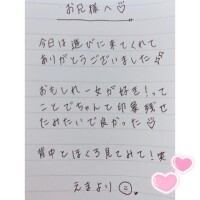 お兄様へ♡
今日は遊びに来てくれて
ありがとうございました
おもしれー女が好き!って
ことでちゃんと印象残せ
たみたいで良かった
背中とほくろ見てみて!笑
えまより